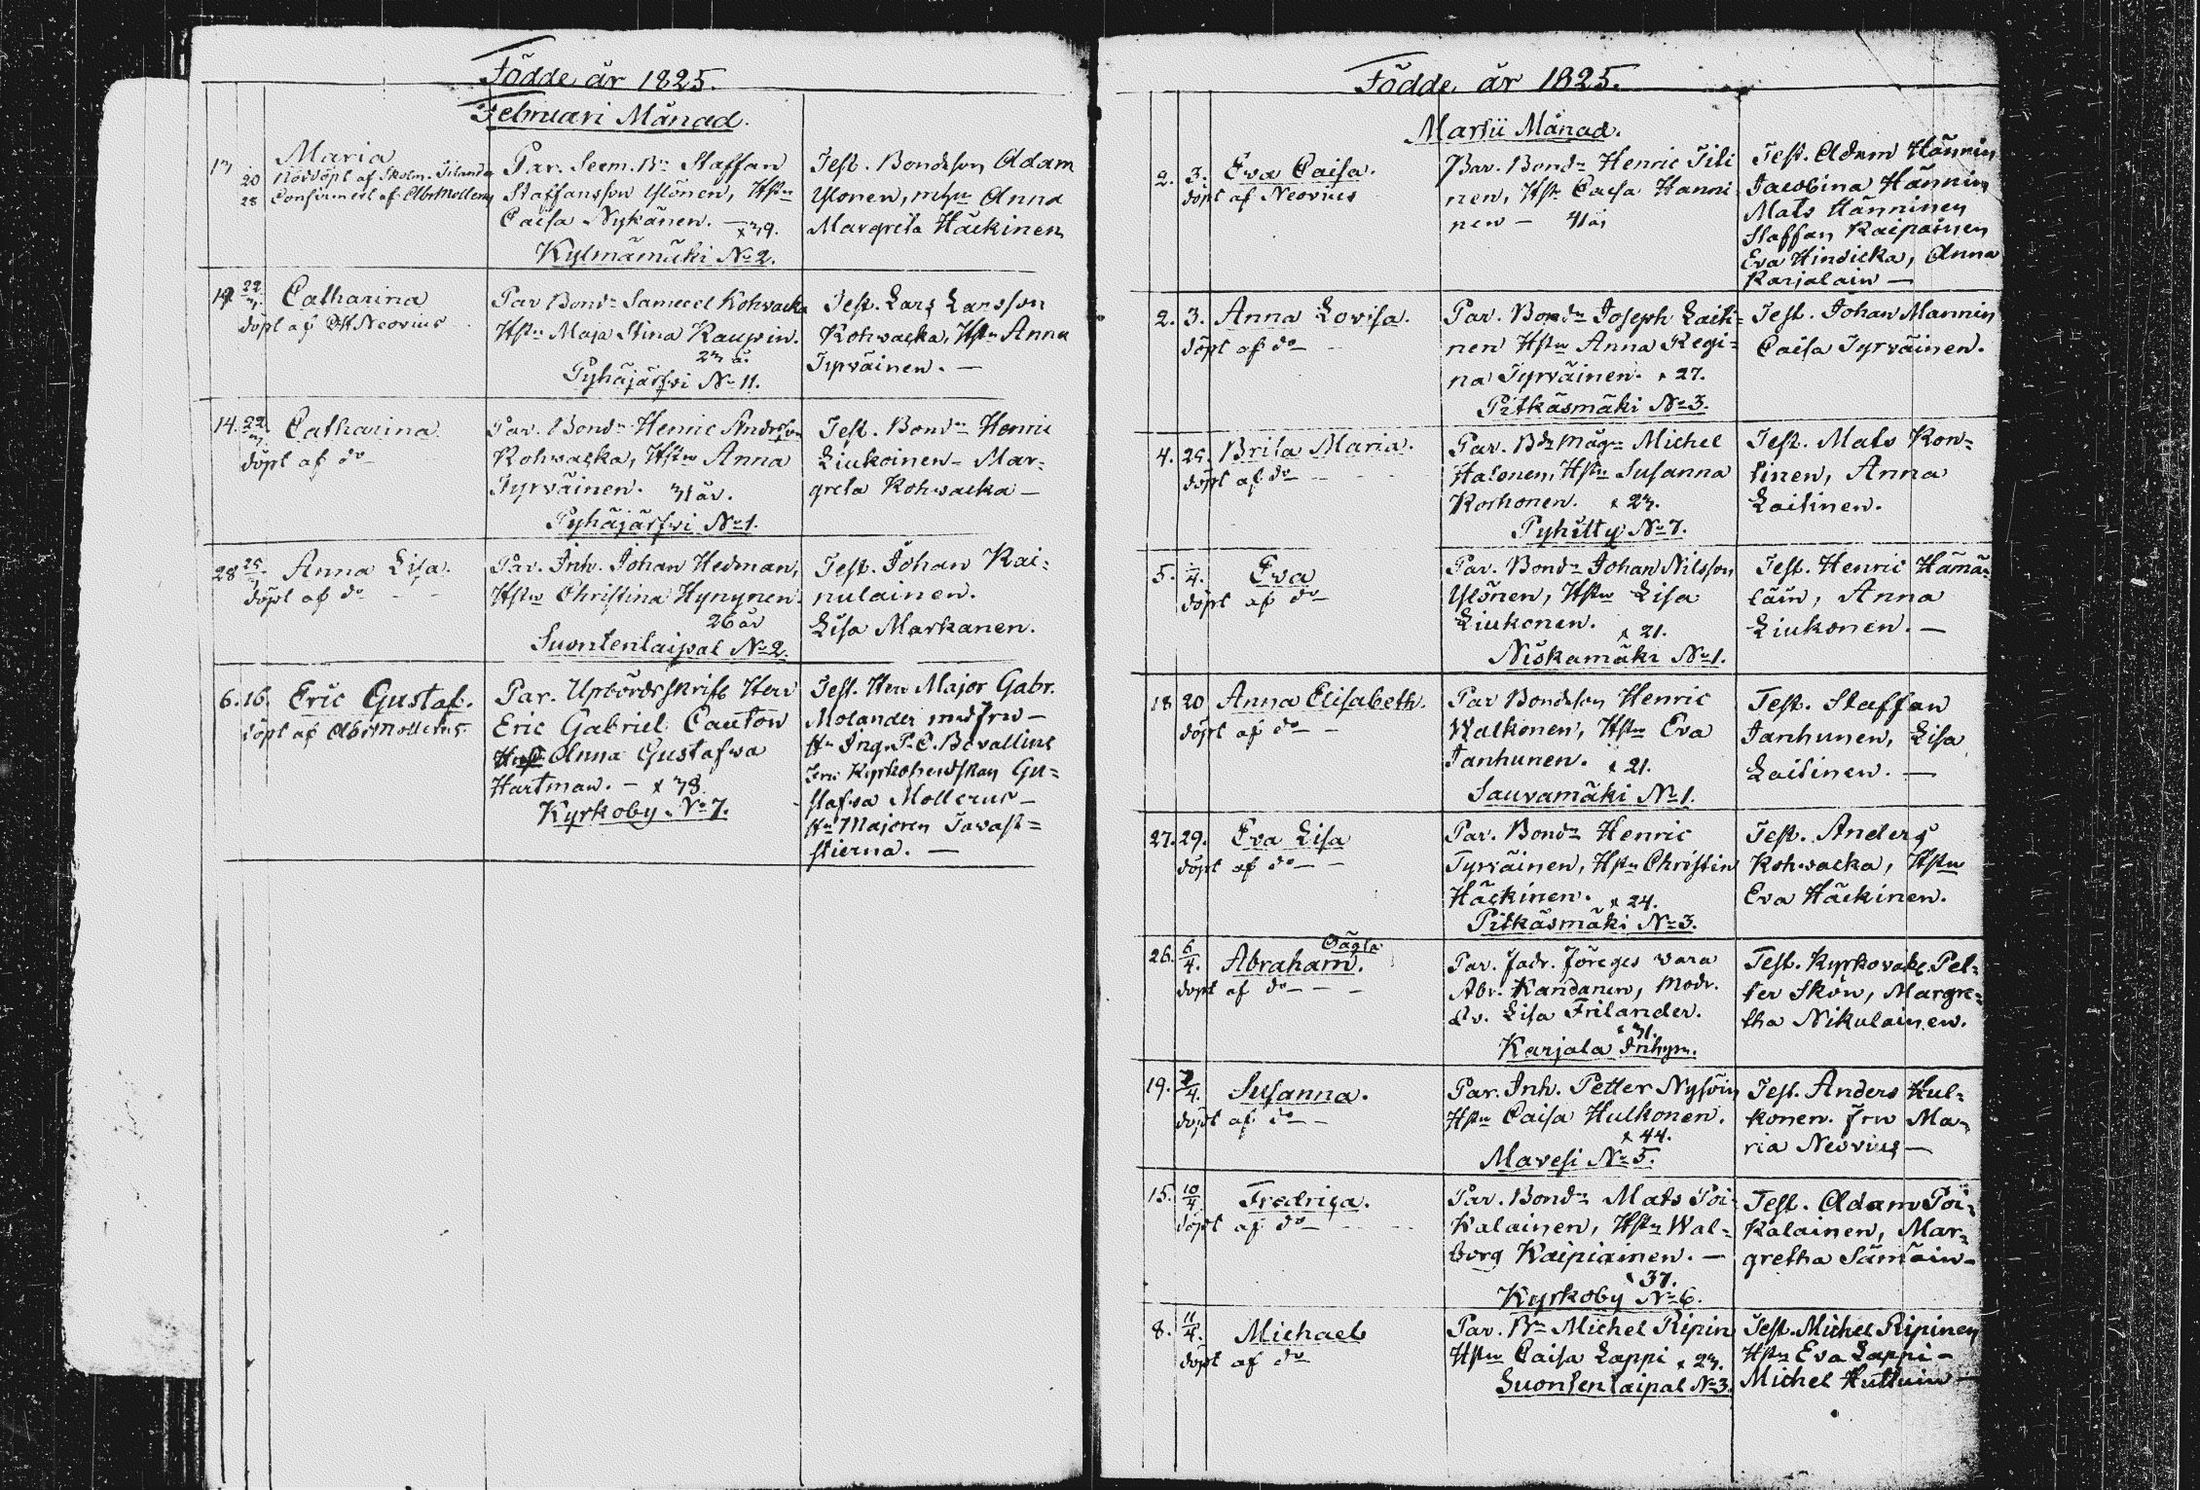 Födde år 1825.
Februari Månad.
13 20 28 Maria
Nöddöpt af Skolm. Frilander
Confirmert af Abr Mollerus
Par. Sexm. Bn Staffan
Staffansson Ylönen, Hstn
Caisa Nykänen. — x 39.
Kylmämäki No 2.
Test. Bondeson Adam
Ylonen, Anna
Margreta Häckinen
19. 22/3. Catharina
döpt af Neovius
Par Bondn Samuel Kohvacka
Hstn Maja Stina Kaupin.
23 år.
Pyhäjärfvi No 11.
Test. Lars Larsson
Kohvacka, Hstn Anna
Tyrväinen. —
14. 22/3. Catharina
döpt af do
Par. Bondn Henric Andersson
Kohvacka, Hstn Anna
Tyrväinen. 31 år.
Pyhäjärfvi No 1.
Test. Bondn Henric
Liukoinen - Mar=
greta Kohvacka —
28 25/3. Anna Lisa.
döpt af do - -
Par. Inh. Johan Hedman,
Hstn Christina Hynynen.
26 år
Suontenlaipal No 2.
Test. Johan Kai=
nulainen.
Lisa Markanen.
6. 16. Eric Gustaf.
döpt af Abr Mollerus.
Par. Upbördsskrifv Herr
Eric Gabriel Cauton
Anna Gustafva
Hartman. — x 38.
Kyrkoby No 7.
Test. Herr Major Gabr.
Molander med fru —
Hr Ing. P. C. Bovallius
fru Kyrkoherdskan Gu=
stafva Mollerus —
Majoren Tavast=
stierna. —
Födde år 1825.
Martii Månad.
2. 3. Eva Caisa.
döpt af Neovius
Par. Bondn Henric Tili
nen, Hstn Caisa Hanni
nen — 41 år
Test. Adam Hännin
Jacobina Hännin
Mats Hänninen
Staffan Kaipainen
Eva Hindicka, Anna
Karjalain —
2. 3. Anna Lovisa.
döpt af do -
Par. Bondn Joseph Laiti=
nen Hstn Anna Regi=
na Tyrväinen. x 27.
Pitkäsmäki No 3.
Test. Johan Mannin
Caisa Tyrväinen.
4. 25. Brita Maria.
döpt af do - - -
Par. Bds mågn Michel
Halonen, Hstn Susanna
Korhonen. x 23.
Pyhitty No 7.
Test. Mats Kon=
tinen, Anna
Laitinen.
5. /4. Eva
döpt af do
Par. Bondn Johan Nilsson
Ylönen, Hstn Lisa
Liukonen. x 21.
Niskamäki No 1.
Test. Henric Hämä=
läin, Anna
Liukonen. —
18 20 Anna Elisabeth.
döpt af do - -
Par Bondeson Henric
Walkonen, Hstn Eva
Janhunen. x 21.
Sauvamäki No 1.
Test. Staffan
Janhunen, Lisa
Laitinen. —
27. 29. Eva Lisa
döpt af do - -
Par. Bondn Henric
Tyrväinen, Hstn Christin
Häckinen. x 24.
Pitkäsmäki No 3.
Test. Anders
Kohvacka, Hstn
Eva Häckinen.
26. 6/4. Abraham. Oägta
döpt af do - - -
Par. fadr. föreges vara
Abr. Kandanen, Modr.
Lisa Frilander.
x 31.
Karjala Inhysn.
Test. Kyrkovakt. Pet=
ter Skön, Margre=
tha Nikulainen.
19. 7/4. Susanna.
döpt af do - -
Par. Inh. Petter Nysöin
Hstn Caisa Hulkonen.
x 44.
Mavesi No 5.
Test. Anders Hul=
konen. fru Ma=
ria Neovius —
15. 10/4. Fredrica.
döpt af do
Par. Bondn Mats Poi=
kalainen, Hstn Wal=
borg Kaipiainen. —
x 37.
Kyrkoby No 6.
Test. Adam Poi=
kalainen, Mar=
gretha Sämäin -
8. 11/4. Michael
döpt af do
Par. Bn Michel Ripin
Hstn Caisa Lappi x 23.
Suontenlaipal No 3.
Test. Michel Ripinen
Hstn Eva Lappi —
Michel Huttuin —